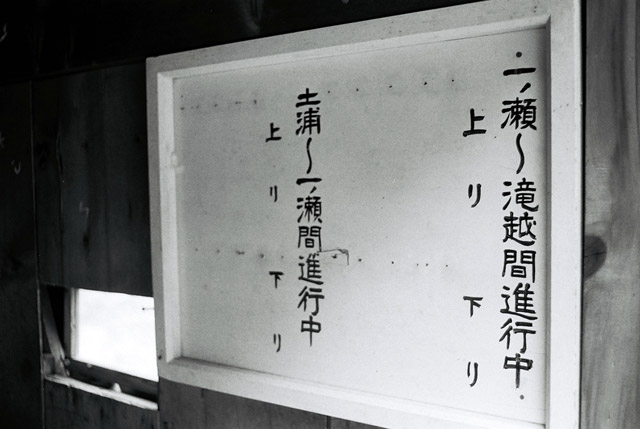 一ノ瀬〜滝越間進行中
上リ 下リ
土浦〜一ノ瀬間進行中
上リ 下リ